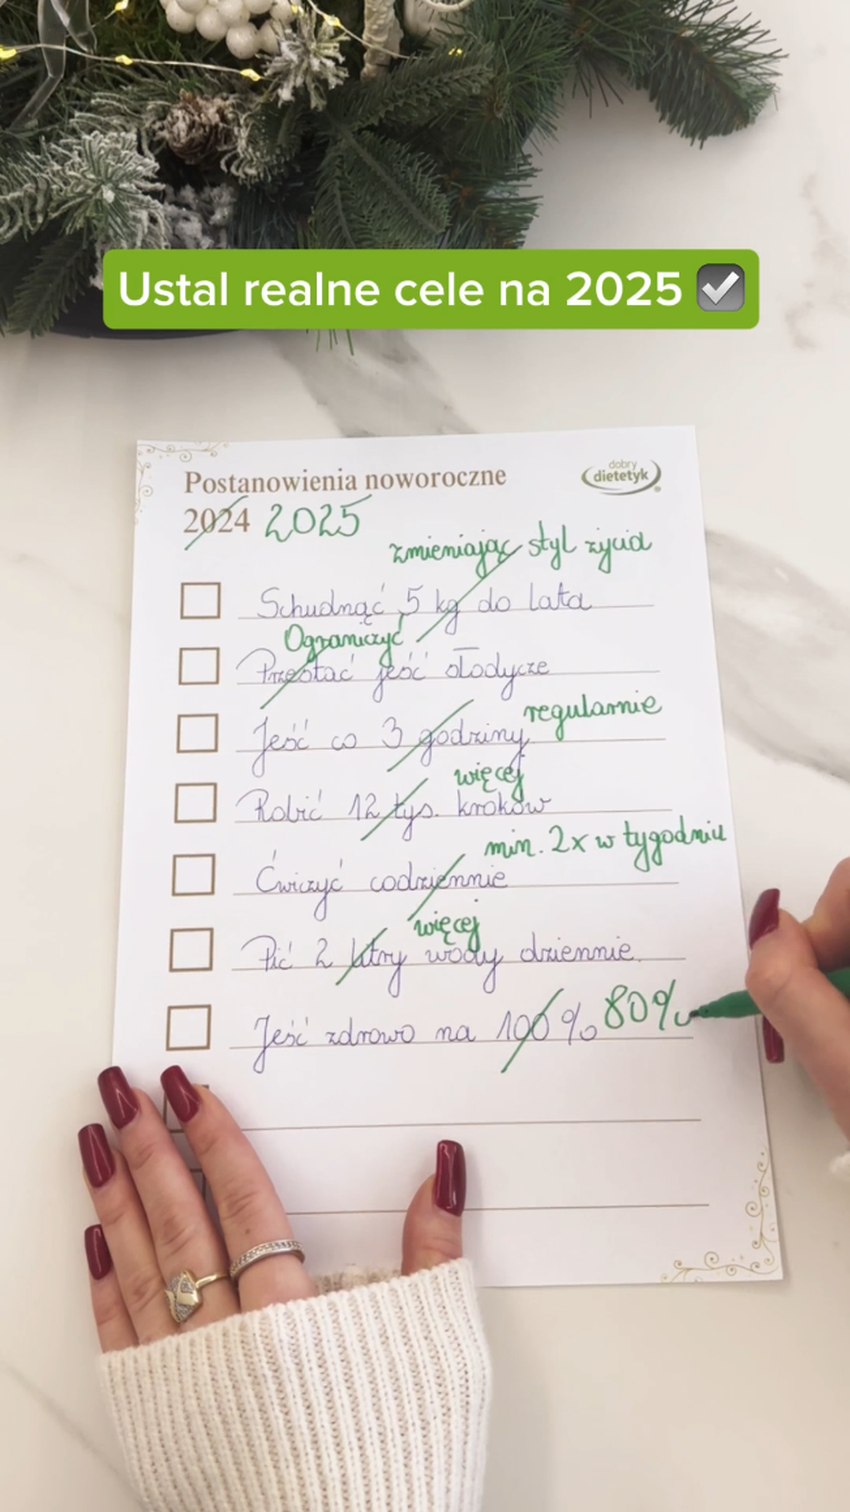 Ustal realne cele na 2025 ✅
Postanowienia noworoczne
dobry
dietetyk
2024 2025
zmieniając styl życia
Schudnąć 5 kg do lata
Ograniczyć
Przestać jeść słodycze
regularnie
Jeść co 3 godziny
więcej
Robić 12 tys. kroków
min. 2x w tygodniu
Ćwiczyć codziennie
więcej
Pić 2 litry wody dziennie
Jeść zdrowo na 100% 80%